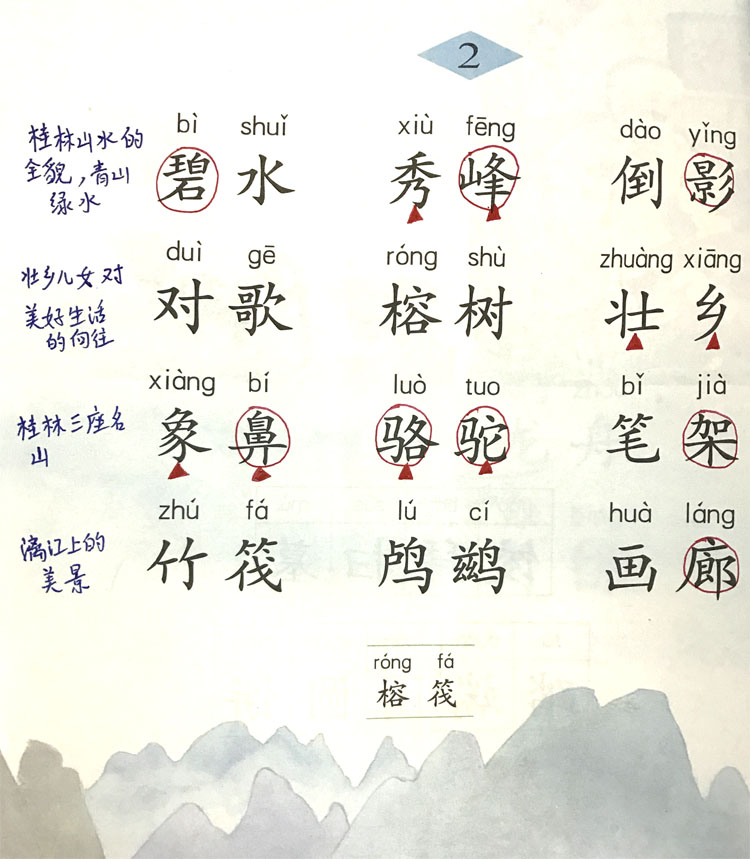 2
桂林山水的
全貌，青山
绿水
bì shuǐ xiù fēng dào yǐng
碧水 秀峰 倒影
壮乡儿女对
美好生活
的向往
duì gē róng shù zhuàng xiāng
对歌 榕树 壮乡
桂林三座名
山
xiàng bí luò tuo bǐ jià
象鼻 骆驼 笔架
漓江上的
美景
zhú fá lú cí huà láng
竹筏 鸬鹚 画廊
róng fá
榕 筏